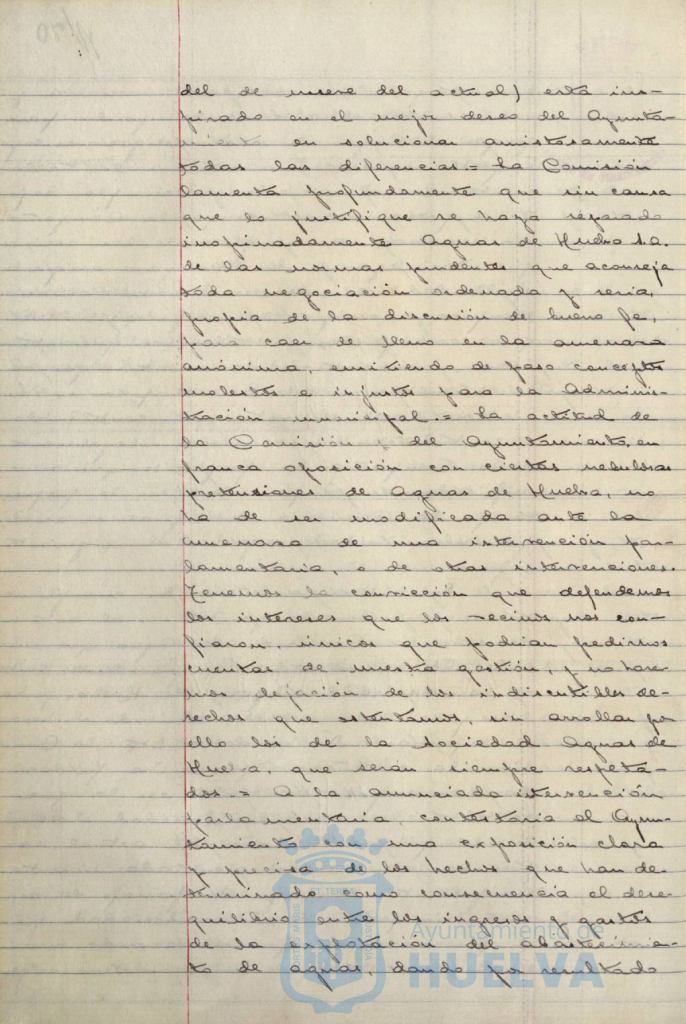 del de nueve del actual) está ins-
pirado en el mejor deseo del Ayunta-
miento en solucionar amistosamente
todas las diferencias.= La Comisión
lamenta profundamente que sin causa
que lo justifique se haya separado
inopinadamente Aguas de Huelva S.A.
de las normas prudentes que aconseja
toda negociación ordenada y seria,
propia de la discusión de buena fe,
para caer de lleno en la amenaza
anónima, emitiendo de paso conceptos
molestos e injustos para la Adminis-
tración municipal.= La actitud de
la Comisión y del Ayuntamiento, en
franca oposición con ciertas nebulosas
pretensiones de Aguas de Huelva, no
ha de ser modificada ante la
amenaza de una intervención par-
lamentaria, o de otras intervenciones.
Tenemos la convicción que defendemos
los intereses que los vecinos nos con-
fiaron, únicos que podrian pedirnos
cuentas de nuestra gestión, y no hare-
mos dejación de los indiscutibles de-
rechos que ostentamos, sin arrollar por
ello los de la Sociedad Aguas de
Huelva, que serán siempre respeta-
dos.= A la anunciada intervención
parlamentaria, contestaria el Ayun-
tamiento con una exposición clara
y precisa de los hechos que han de-
terminado como consecuencia el dese-
quilibrio entre los ingresos y gastos
de la explotación del abastecimien-
to de aguas, dando por resultado
Ayuntamiento de
HUELVA